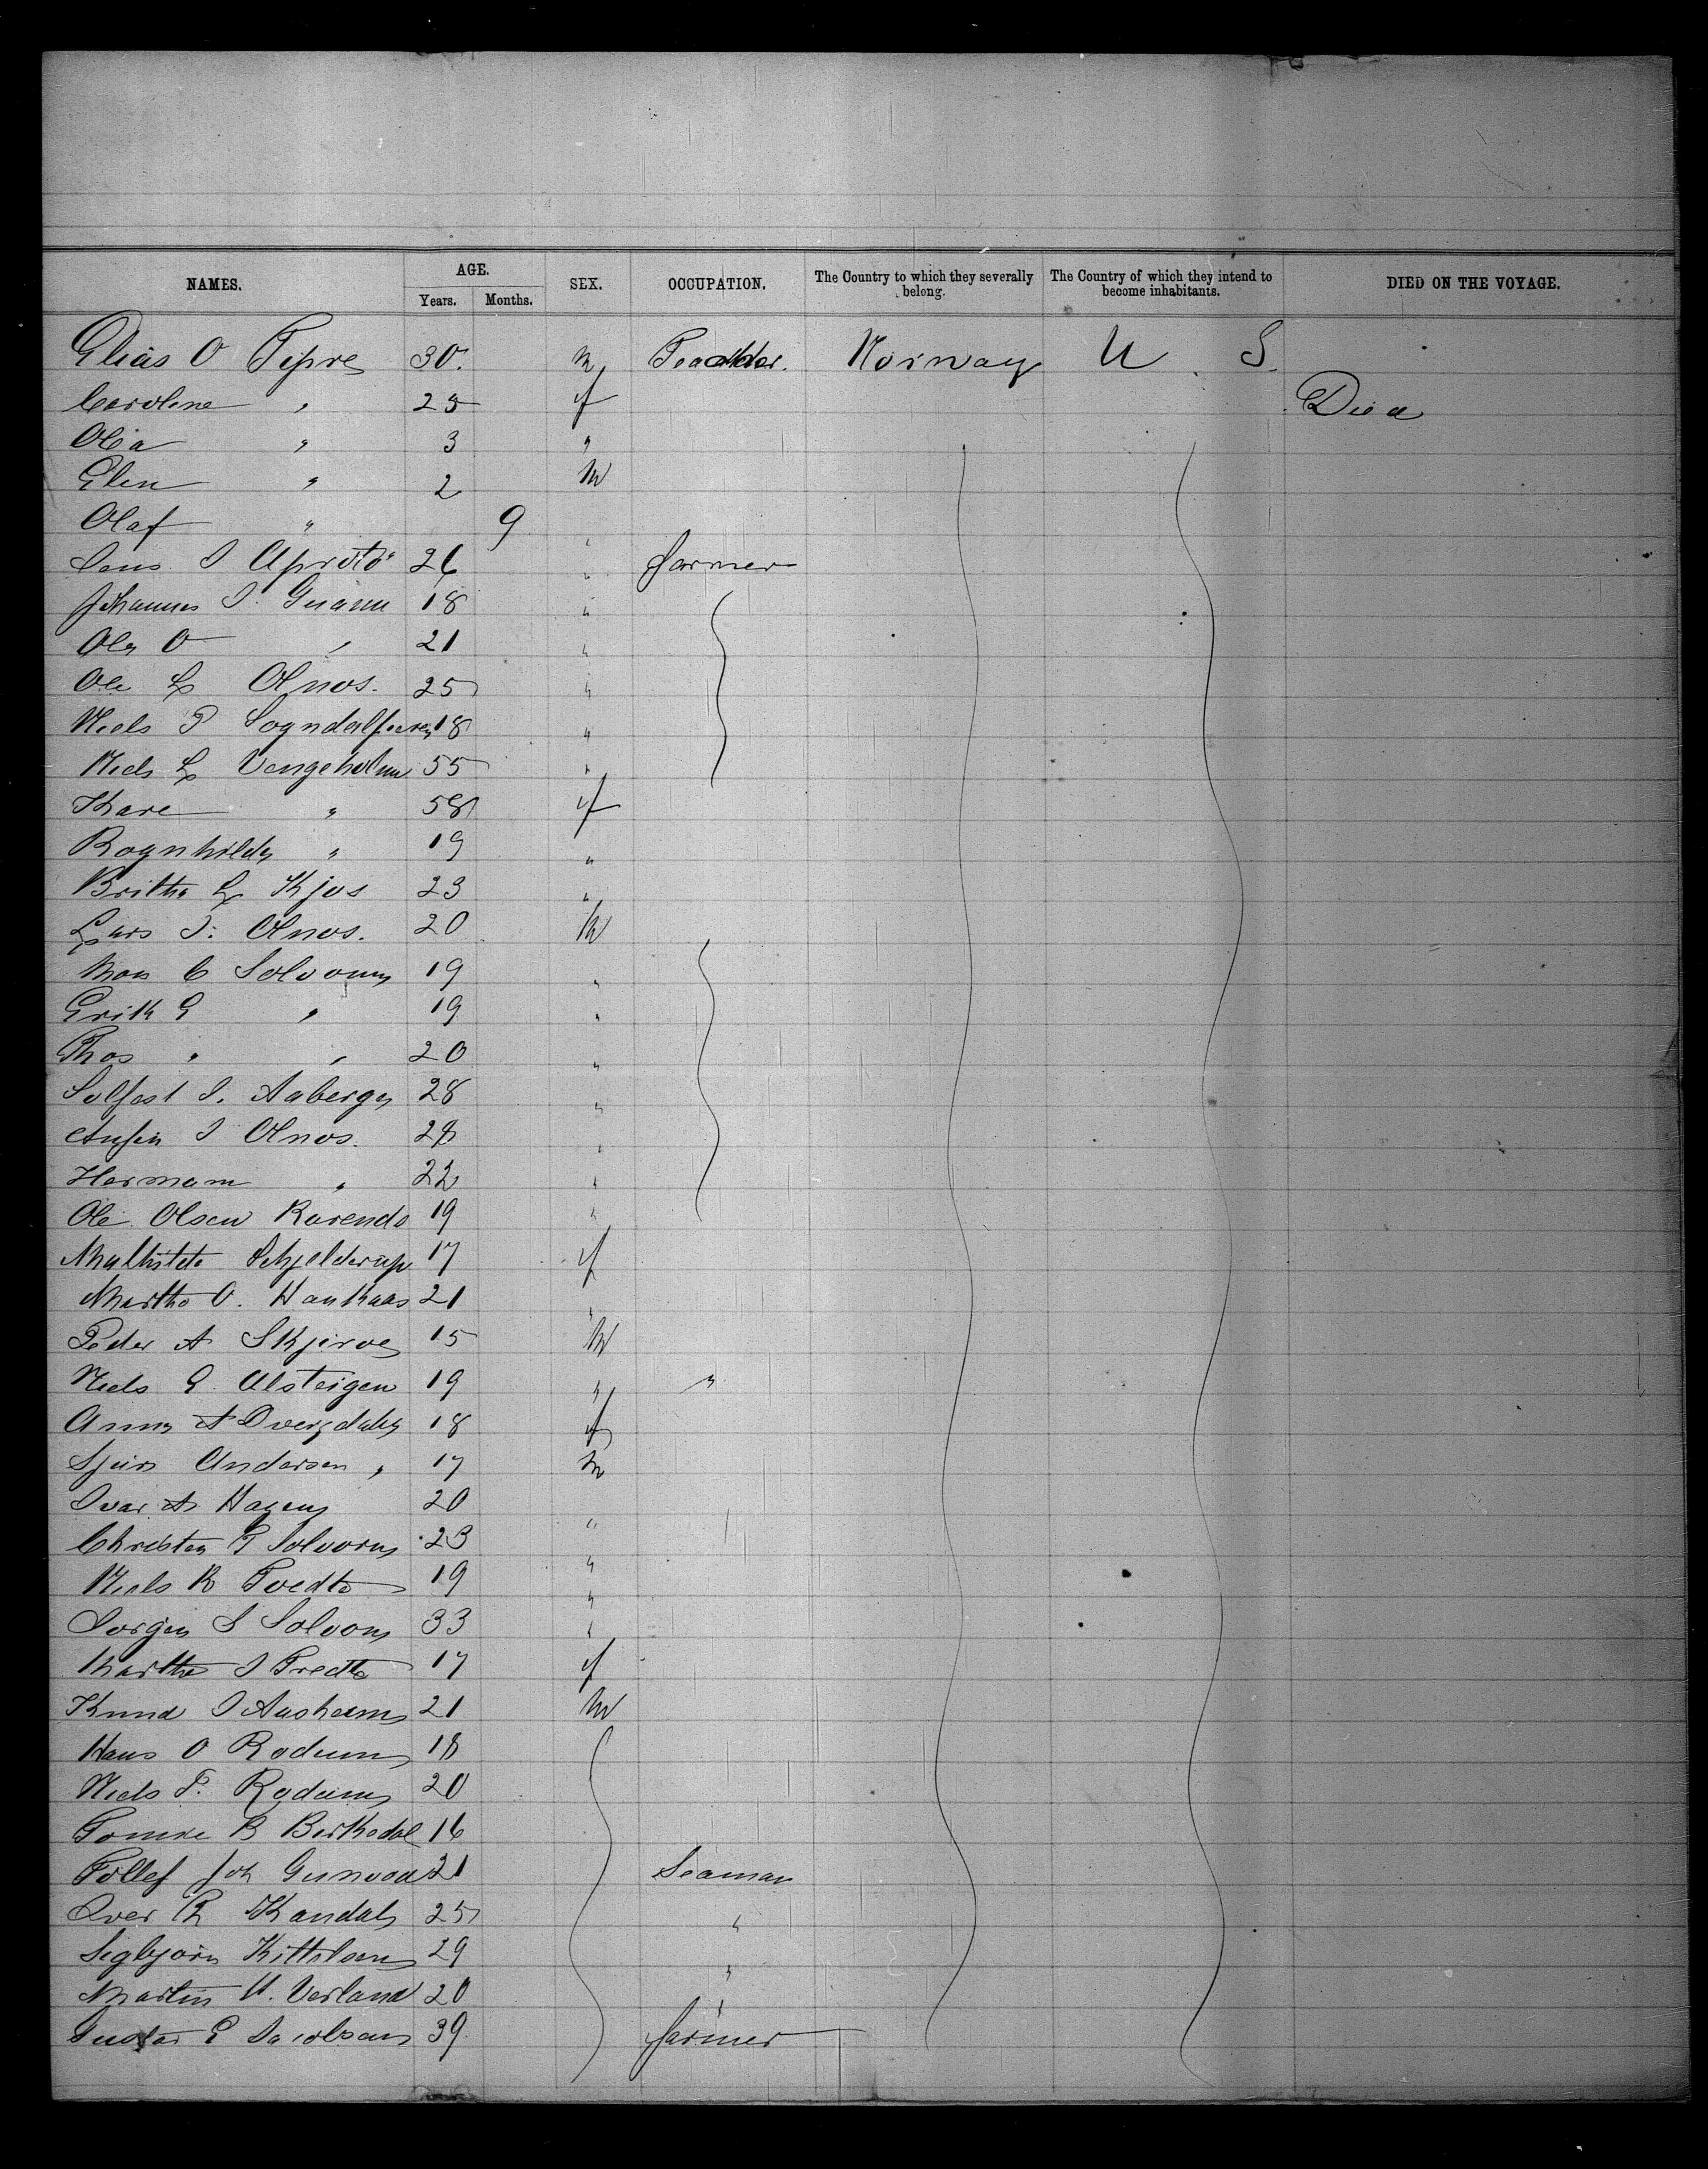 NAMES. AGE. Years. Months. SEX. OCCUPATION. The Country to which they severally belong. The Country of which they intend to become inhabitants. DIED ON THE VOYAGE.
Elias O 30. m Norway U. S.
Caroline " 25 f Died
Olia " 3 "
Elen " 2 M
Olaf " 9 "
26 " farmer
Johannes 18 "
Ole O " 21 "
Ole L Olnos. 25 "
Niels P 18 "
Niels L Vangeholm 55 "
Kare " 58 f
Ragnhild " 19 "
Brithe L Kjos 23 "
Lars I. Olnos. 20 M
Mons C Solvorn 19 "
Erik E " 19 "
Thos " " 20 "
Solfest I. Aaberge 28 "
Ansten I Olnos. "
Hermann " 22 "
Ole Olsen 19 "
Mathilde Schjelderup 17 f
Martha O. Haukaas 21 "
Peder A Skjerve 15 M
Niels E. Alsteigen 19 " "
Anna A 18 f
Sjur Andersen " 17 m
Ivar A Hagen 20 "
Christen P Solvorn 23 "
Niels R Tvedte 19 "
Jorgen S Solvorn 33 "
Martha I 17 f
Knud I 21 M
Hans O 18
Niels 20
B 16
Tollef Joh 21 Seaman
Iver R 25 "
Sigbjorn Kittelsen 29 "
Martin H. Verland 20 "
Gustav E Jacobsen 39. farmer